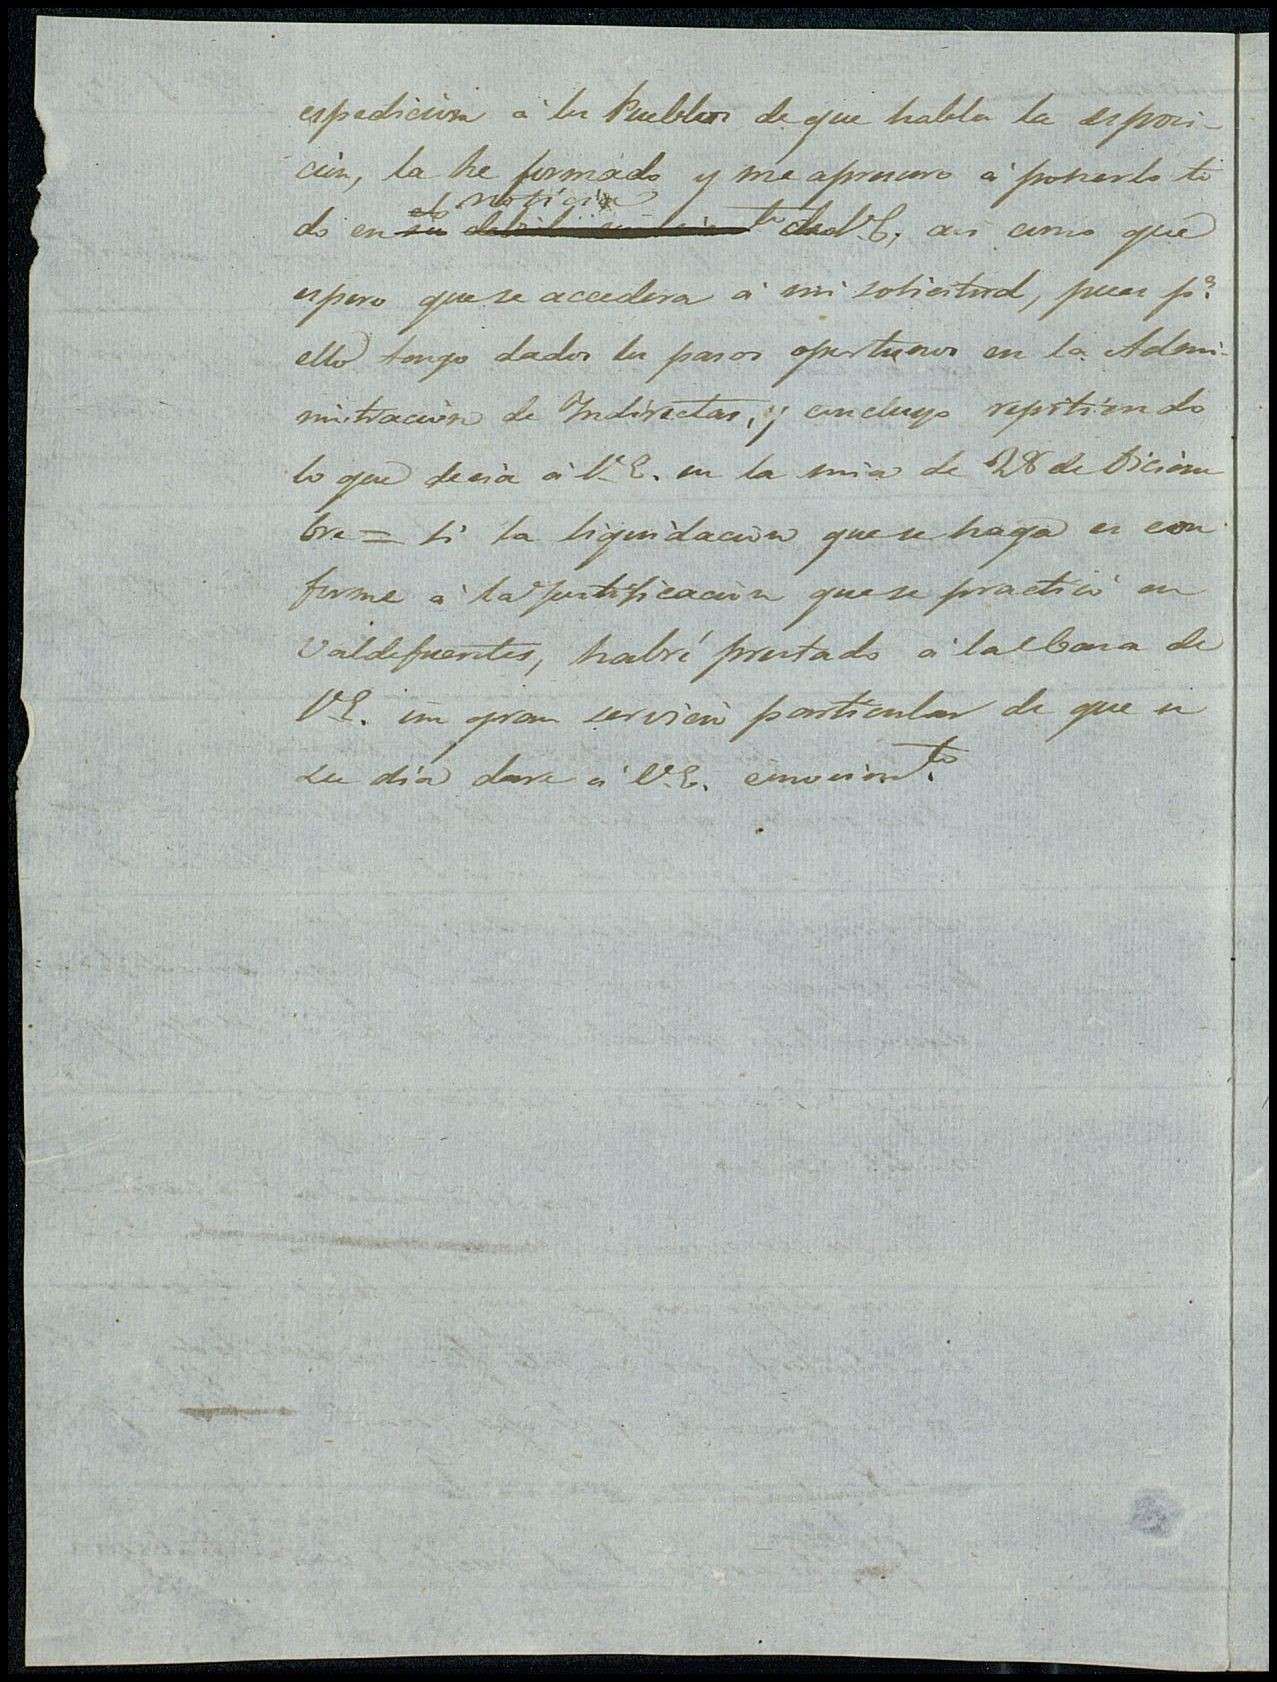 espedicion á los Pueblos de que habla la esposi-
cion, la he formado y me apresuro á ponerlo to
noticia
do en de V.E. asi como que
espero que se accedera á mi solicitud, pues pª
ello tengo dados los pasos oportunos en la Admi-
nistracion de Indirectas, y concluyo repitiendo
lo que decia á V.E. en la mia de 28 de Diciem
bre = Si la liquidacion que se haga es con
forme á la Justificacion que se practicó en
Valdefuentes, habré prestado á la Casa de
V.E. un gran servicio particular de que en
su dia dare á V.E. conocimto.